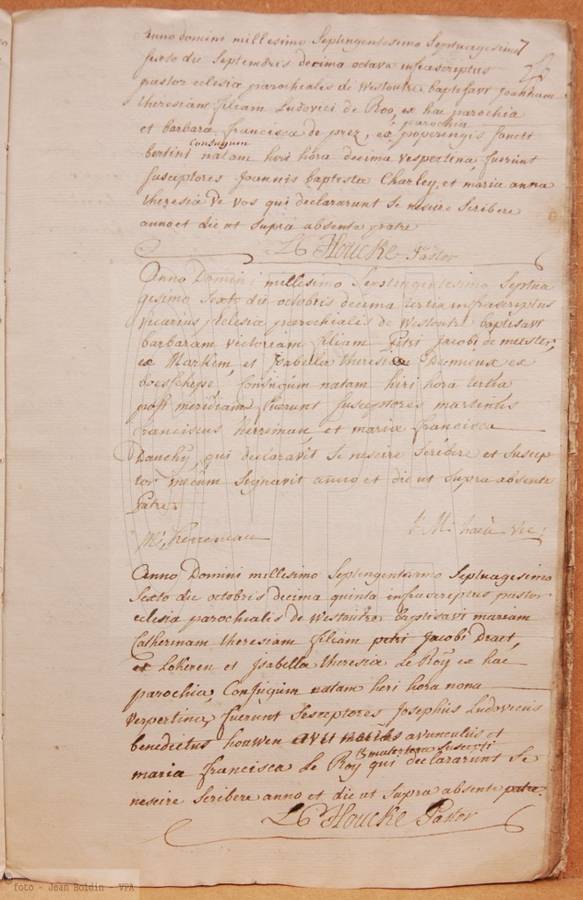 Anno domini millesimo Septingentesimo Septuagesimo 7
sexto die Septembris decima octava infrascriptus
pastor eclesiæ parochialis de Westoutre baptisavi Joannam
theresiam filiam Ludovici de Roo, ex hac parochia
et barbara francisca de prez, ex parochia poperingis Sancti
bertini conjugum natam heri hora decima vespertina, fuerunt
susceptores Joannis baptista Charley, et maria anna
theresia de vos qui declararunt se nescire scribere
anno et die ut supra absente patre
Houcke Pastor
Anno Domini millesimo Septingentesimo Septua
gesimo Sexto die octobris decima tertia infrascriptus
vicarius Eclesiæ parochialis de Westoutre baptisavi
barbaram victoriam filiam Petri Jacobi de meester,
ex et Isabella theresia ex
boeschepe, conjugum natam heri hora tertia
post meridiem, fuerunt susceptores martinus
franciscus herreman, et maria francisca
Dauchy, qui declaravit se nescire scribere et suscep
tor mecum signavit anno et die ut supra absente
Patre
vic:
Anno Domini millesimo Septingentesimo Septuagesimo
Sexto die octobris decima quinta infrascriptus pastor
eclesiæ parochialis de Westoutre baptisavi mariam
Catherinam theresiam filiam petri Jacobi Draet,
ex Lokeren et Isabella theresia Le Roy ex hac
parochia, conjugum natam heri hora nona
verpertina, fuerunt Sesceptores Josephus Ludovicus
benedictus houwen avunculus et
maria francisca Le Roy matertera suscepti qui declararunt se
nescire scribere anno et die ut supra absente patre.
Houcke Pastor
foto - Jean Boidin - VPA